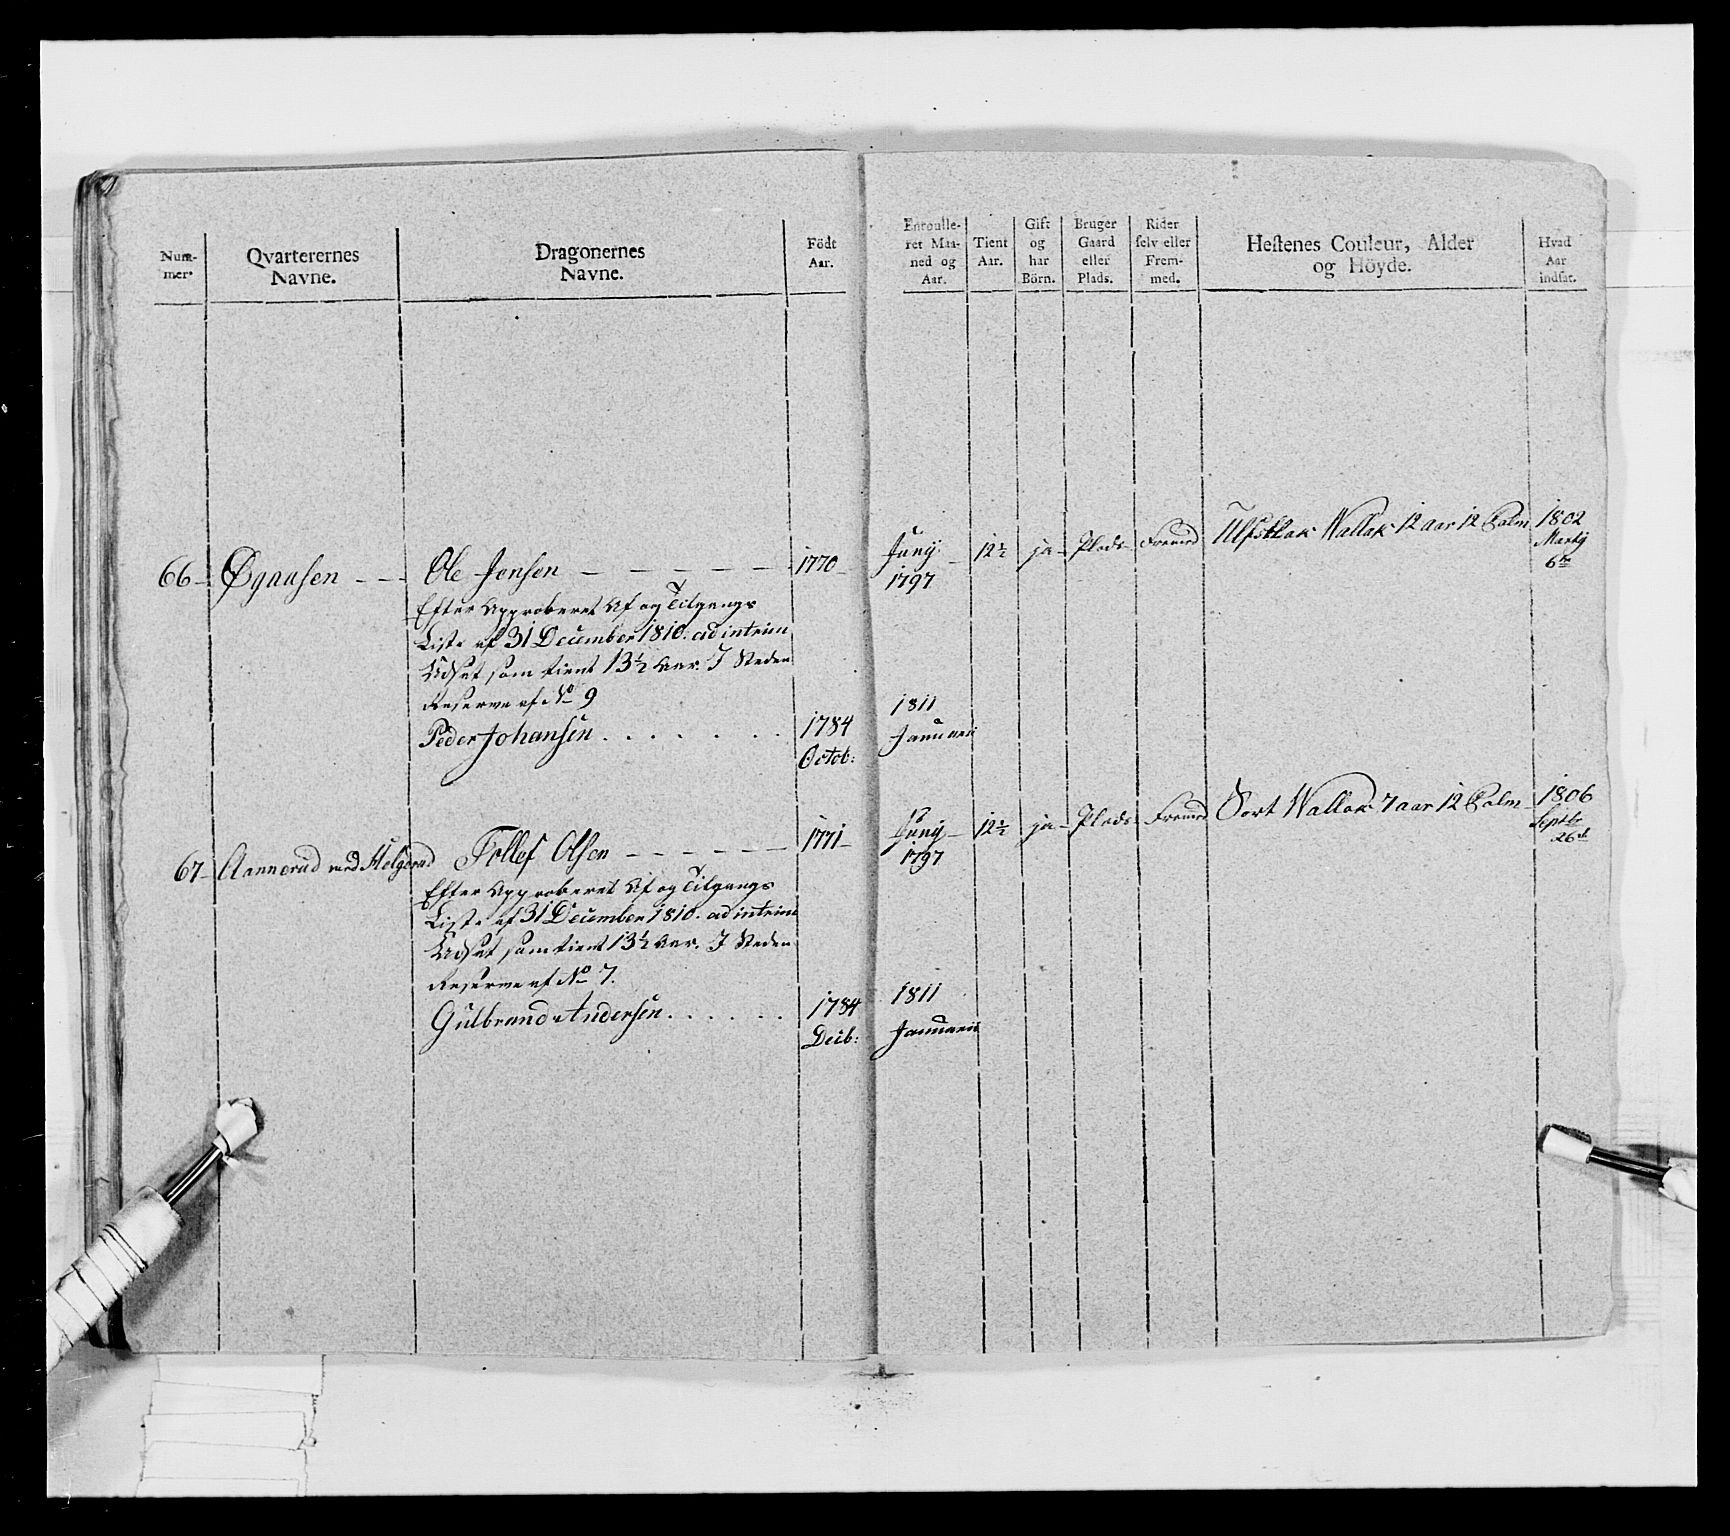 Num-
mer.
Qvarterernes
Navne.
Dragonernes
Navne.
Födt
Aar.
Enroulle-
ret Maa-
ned og
Aar.
Tient
Aar.
Gift
og
har
Börn.
Bruger
Gaard
eller
Plads.
Rider
selv eller
Frem-
med.
Hestenes Couleur, Alder
og Höyde.
Hvad
Aar
indsat.
66 Øgaasen Ole Jensen 1770
Juny 1797 12½ ja Plads Fremed Ulfsblak Wallak 12 aar 12 Palm 1802
Marty
6te
Efter Approberet Af og Tilgangs
Liste af 31 December 1810. ad interim
Udsat som tient 13½ Aar. I Steden
Reserve af No 9
Peder Johansen 1784
Octob:
1811
Januarii
67 Aannerud med Helgerud Tollef Olsen 1771
Juny 1797 12½ ja Plads Fremed Sort Wallak 7 aar 12 Palm 1806
Septbr
26de
Efter Approberet Af og Tilgangs
Liste af 31 December 1810. ad interim
Udsat som tient 13½ Aar. I Steden
Reserve af No 7.
Gulbrand Andersen 1784
Decb:
1811
Januarii